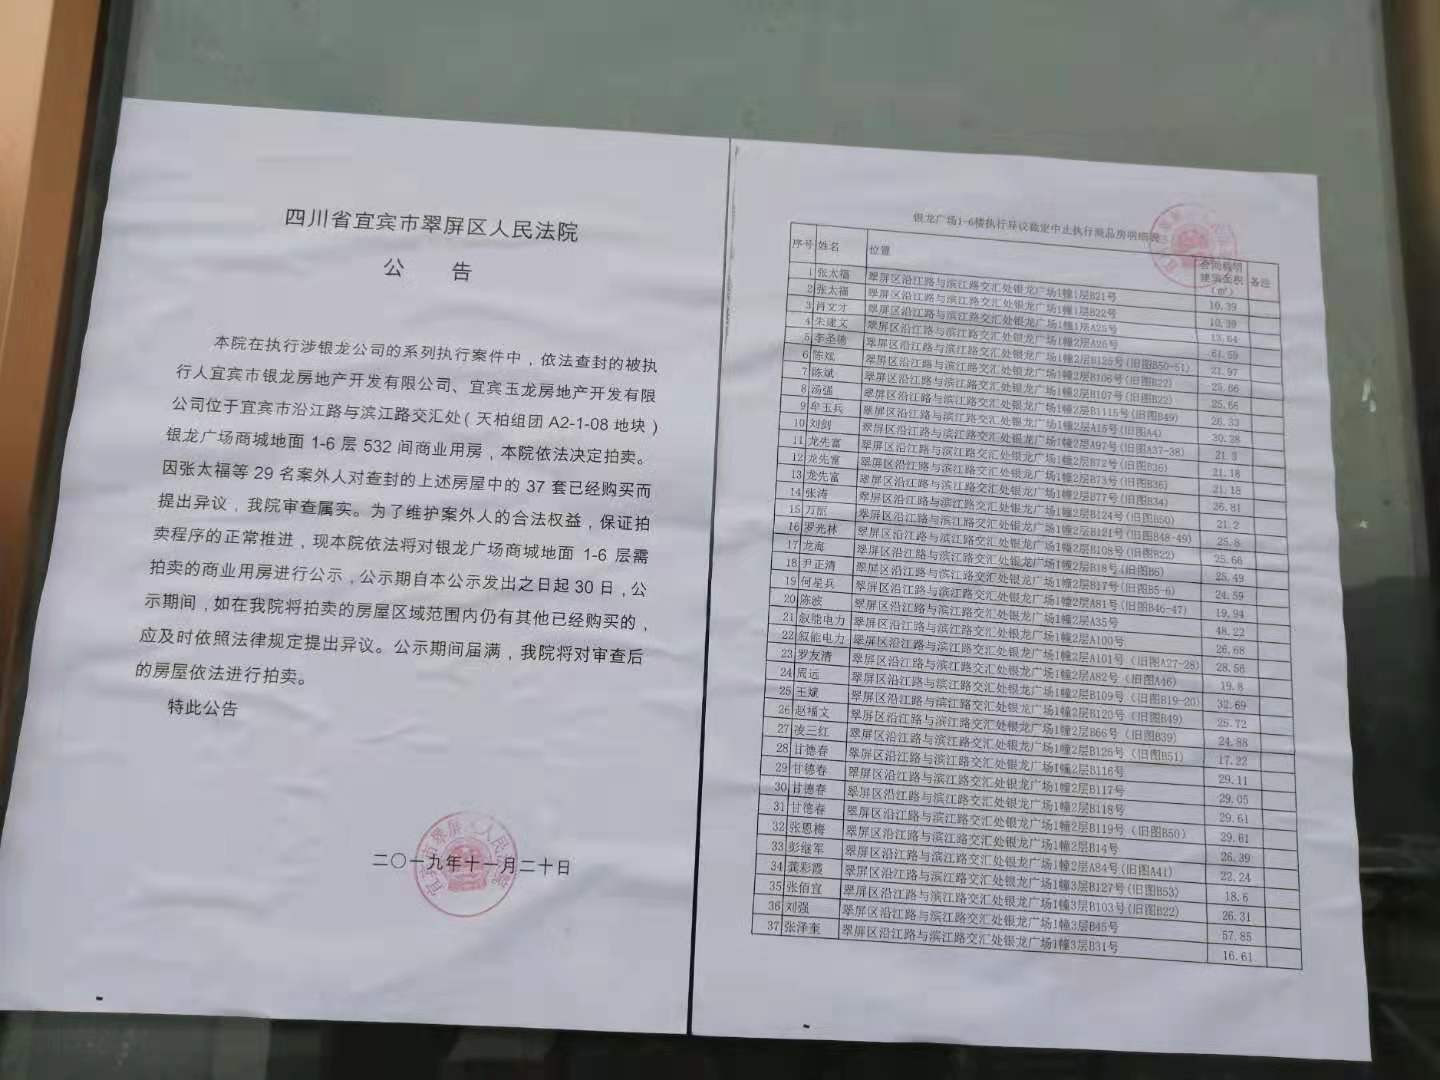 四川省宜宾市翠屏区人民法院
公 告
本院在执行涉银龙公司的系列执行案件中，依法查封的被执
行人宜宾市银龙房地产开发有限公司、宜宾玉龙房地产开发有限
公司位于宜宾市沿江路与滨江路交汇处（天柏组团 A2-1-08 地块）
银龙广场商城地面 1-6 层 532 间商业用房，本院依法决定拍卖。
因张太福等 29 名案外人对查封的上述房屋中的 37 套已经购买而
提出异议，我院审查属实。为了维护案外人的合法权益，保证拍
卖程序的正常推进，现本院依法将对银龙广场商城地面 1-6 层需
拍卖的商业用房进行公示，公示期自本公示发出之日起 30 日，公
示期间，如在我院将拍卖的房屋区域范围内仍有其他已经购买的，
应及时依照法律规定提出异议。公示期间届满，我院将对审查后
的房屋依法进行拍卖。
特此公告
二〇一九年十一月二十日
银龙广场1-6楼执行异议裁定中止执行商品房明细表
序号 姓名 位置 合同载明建筑面积（㎡） 备注
1 张太福 翠屏区沿江路与滨江路交汇处银龙广场1幢1层B21号 10.39
2 张太福 翠屏区沿江路与滨江路交汇处银龙广场1幢1层B22号 10.39
3 肖文才 翠屏区沿江路与滨江路交汇处银龙广场1幢1层A25号 13.64
4 朱建文 翠屏区沿江路与滨江路交汇处银龙广场1幢2层A26号 61.59
5 李圣德 翠屏区沿江路与滨江路交汇处银龙广场1幢2层B125号(旧图B50-51) 21.97
6 陈斌 翠屏区沿江路与滨江路交汇处银龙广场1幢2层B106号(旧图B22) 25.66
7 陈斌 翠屏区沿江路与滨江路交汇处银龙广场1幢2层B107号(旧图B22) 25.66
8 汤强 翠屏区沿江路与滨江路交汇处银龙广场1幢2层B1115号(旧图B49) 26.33
9 牟玉兵 翠屏区沿江路与滨江路交汇处银龙广场1幢2层A15号(旧图A4) 30.28
10 刘剑 翠屏区沿江路与滨江路交汇处银龙广场1幢2层A97号(旧图A37-38) 21.3
11 龙先富 翠屏区沿江路与滨江路交汇处银龙广场1幢2层B72号(旧图B36) 21.18
12 龙先富 翠屏区沿江路与滨江路交汇处银龙广场1幢2层B73号(旧图B36) 21.18
13 龙先富 翠屏区沿江路与滨江路交汇处银龙广场1幢2层B77号(旧图B34) 26.81
14 张涛 翠屏区沿江路与滨江路交汇处银龙广场1幢2层B124号(旧图B50) 21.2
15 万原 翠屏区沿江路与滨江路交汇处银龙广场1幢2层B121号(旧图B48-49) 25.8
16 罗光林 翠屏区沿江路与滨江路交汇处银龙广场1幢2层B108号(旧图B22) 25.66
17 龙海 翠屏区沿江路与滨江路交汇处银龙广场1幢2层B18号(旧图B6) 25.49
18 尹正清 翠屏区沿江路与滨江路交汇处银龙广场1幢2层B17号(旧图B5-6) 24.59
19 何星兵 翠屏区沿江路与滨江路交汇处银龙广场1幢2层A81号(旧图B46-47) 19.94
20 陈波 翠屏区沿江路与滨江路交汇处银龙广场1幢2层A35号 48.22
21 叙能电力 翠屏区沿江路与滨江路交汇处银龙广场1幢2层A100号 26.68
22 叙能电力 翠屏区沿江路与滨江路交汇处银龙广场1幢2层A101号（旧图A27-28) 28.56
23 罗友清 翠屏区沿江路与滨江路交汇处银龙广场1幢2层A82号（旧图A46) 19.8
24 周远 翠屏区沿江路与滨江路交汇处银龙广场1幢2层B109号（旧图B19-20) 32.69
25 王斌 翠屏区沿江路与滨江路交汇处银龙广场1幢2层B120号（旧图B49) 25.72
26 赵福文 翠屏区沿江路与滨江路交汇处银龙广场1幢2层B66号（旧图B39) 24.88
27 凌三红 翠屏区沿江路与滨江路交汇处银龙广场1幢2层B126号（旧图B51) 17.22
28 甘德春 翠屏区沿江路与滨江路交汇处银龙广场1幢2层B116号 29.11
29 甘德春 翠屏区沿江路与滨江路交汇处银龙广场1幢2层B117号 29.05
30 甘德春 翠屏区沿江路与滨江路交汇处银龙广场1幢2层B118号 29.61
31 甘德春 翠屏区沿江路与滨江路交汇处银龙广场1幢2层B119号（旧图B50) 29.61
32 张恩梅 翠屏区沿江路与滨江路交汇处银龙广场1幢2层B14号 26.39
33 彭继军 翠屏区沿江路与滨江路交汇处银龙广场1幢2层A84号(旧图A41) 22.24
34 龚彩霞 翠屏区沿江路与滨江路交汇处银龙广场1幢3层B127号(旧图B53) 18.6
35 张佰宜 翠屏区沿江路与滨江路交汇处银龙广场1幢3层B103号(旧图B22) 26.31
36 刘强 翠屏区沿江路与滨江路交汇处银龙广场1幢3层B45号 57.85
37 张泽奎 翠屏区沿江路与滨江路交汇处银龙广场1幢3层B31号 16.61